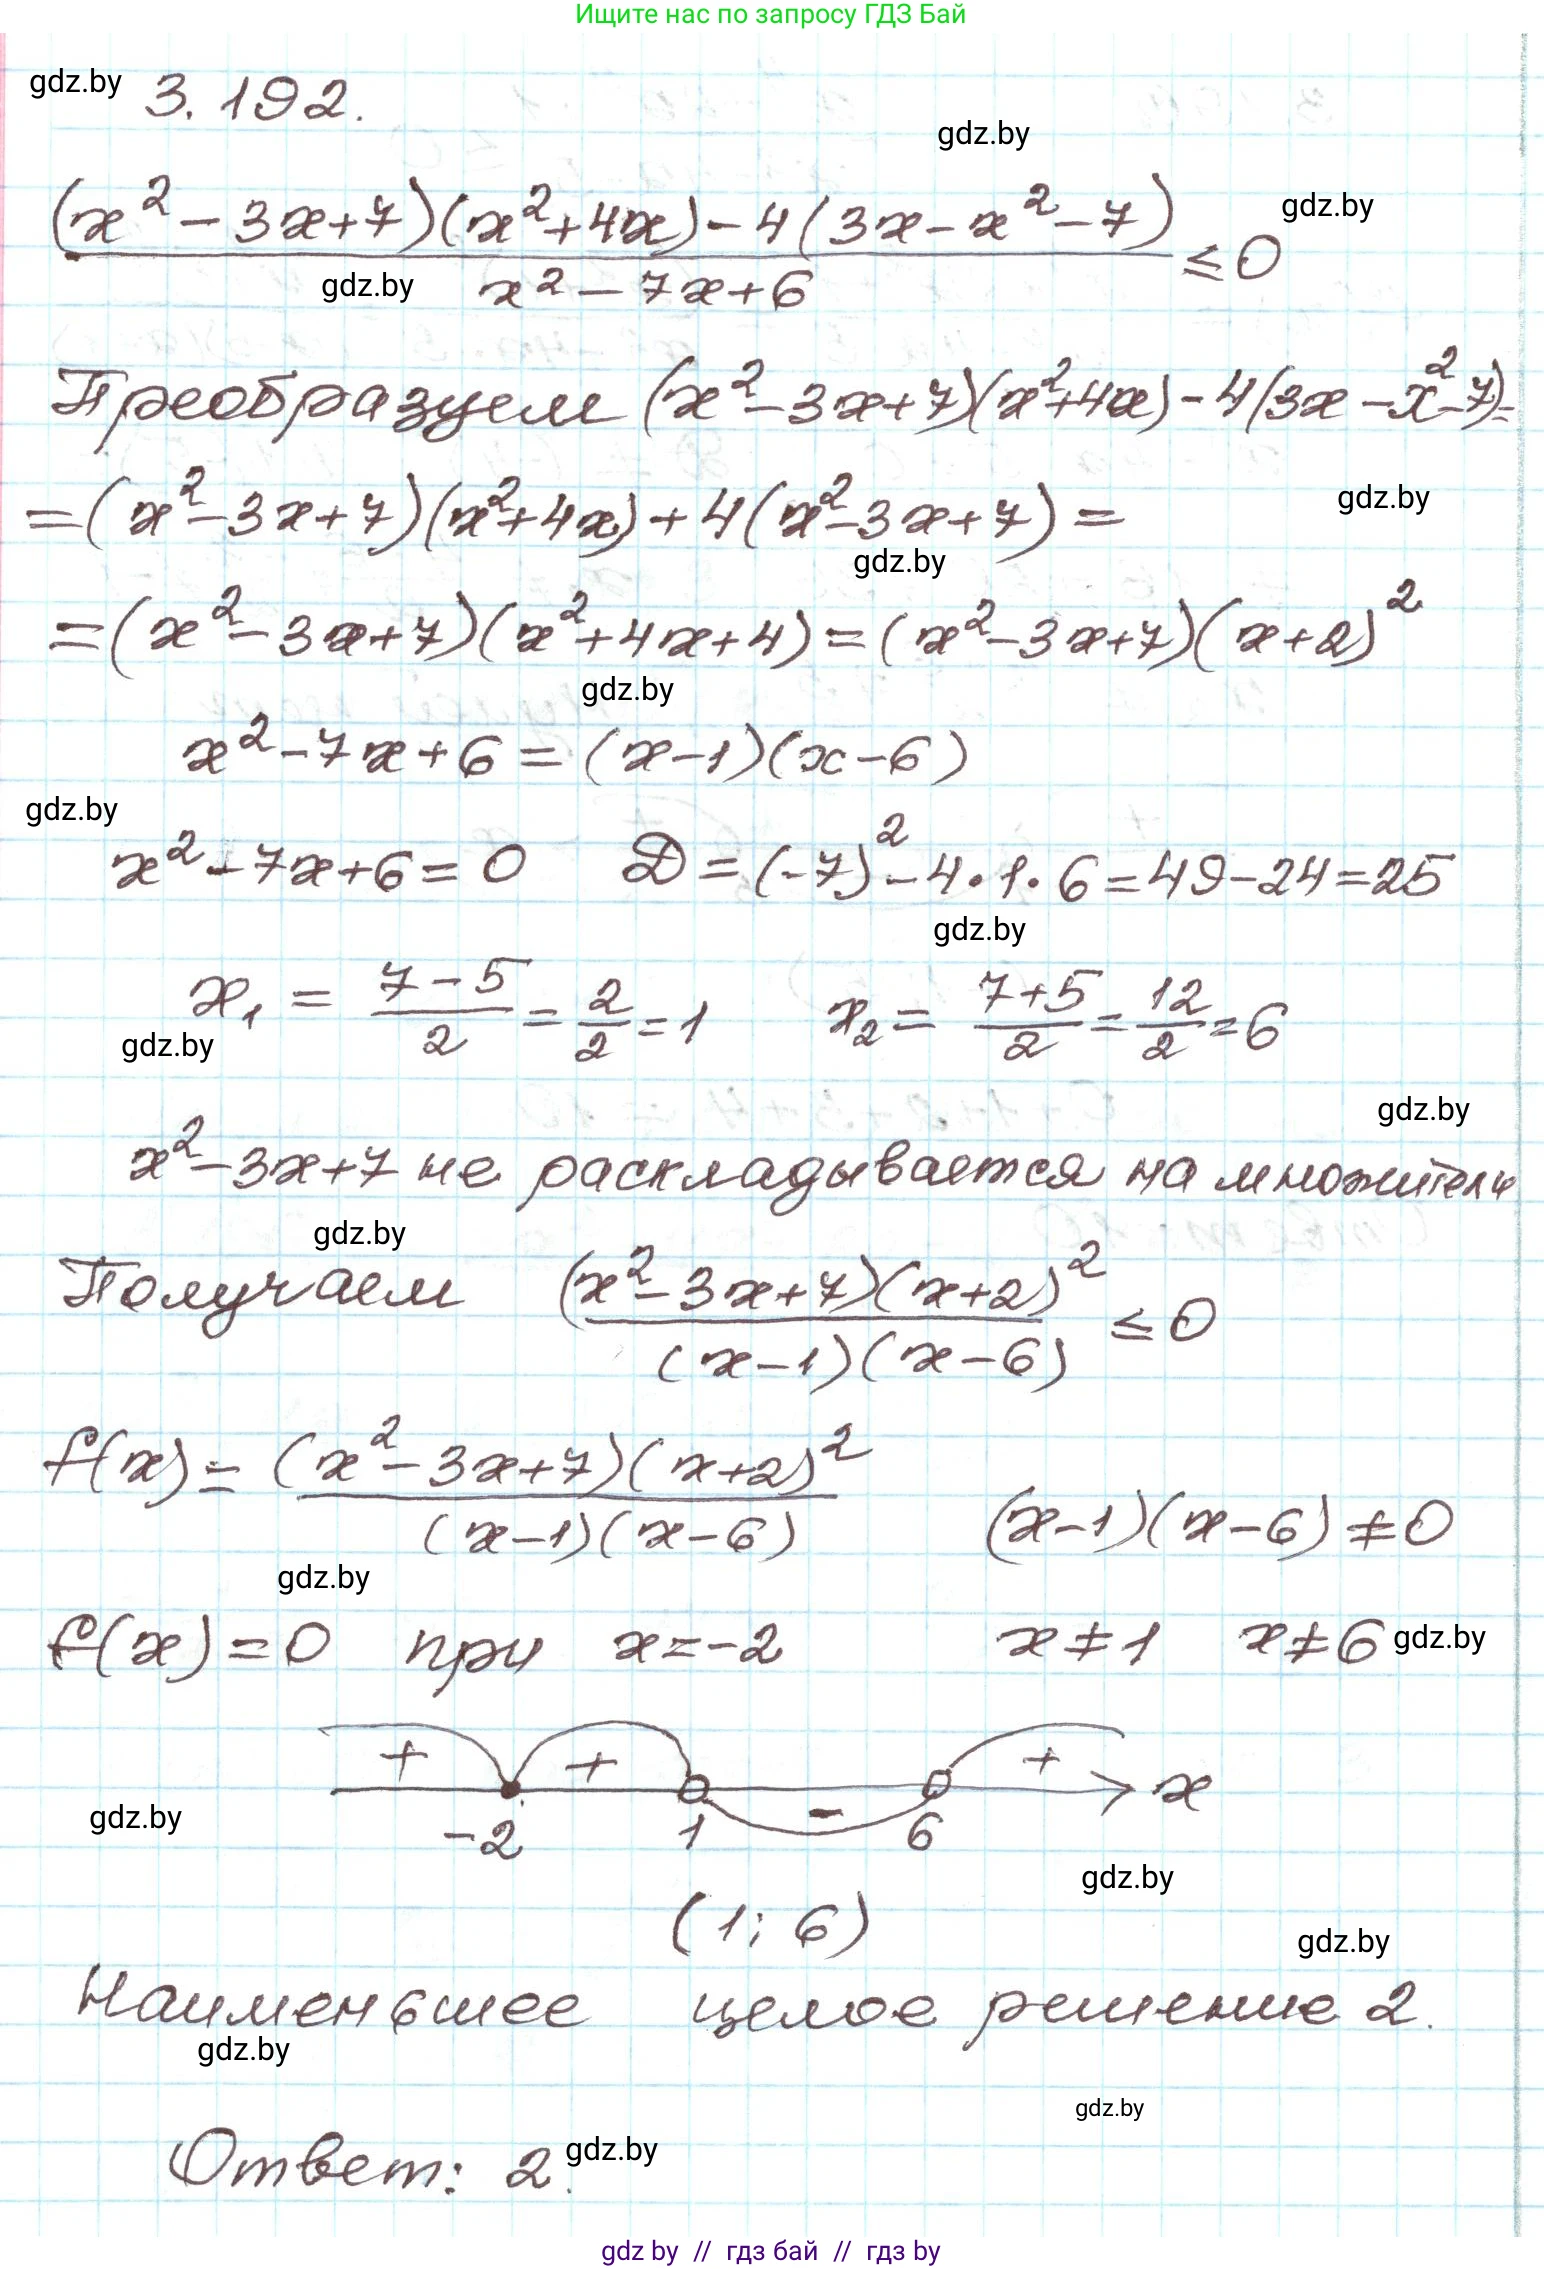 Ищите нас по запросу ГДЗ Бай
gdz.by
3.192.
gdz.by
(x² - 3x+7)(x²+4x) - 4(3x - x² - 7)
gdz.by
≤ 0
gdz.by
x² - 7x+6
Преобразуем (x² - 3x+7)(x²+4x) - 4(3x - x² - 7)=
=(x² - 3x+7)(x²+4x)+4(x² - 3x+7)=
gdz.by
gdz.by
=(x² - 3x+7)(x²+4x+4)=(x² - 3x+7)(x+2)²
gdz.by
x² - 7x+6=(x-1)(x-6)
gdz.by
x² - 7x+6=0 D=(-7)² - 4·1·6=49-24=25
gdz.by
x₁ = (7-5)/2 = 2/2 = 1 x₂ = (7+5)/2 = 12/2 = 6
gdz.by
gdz.by
x² - 3x+7 не раскладывается на множители
gdz.by
Получаем (x² - 3x+7)(x+2)² / (x-1)(x-6) ≤ 0
f(x)= (x² - 3x+7)(x+2)² / (x-1)(x-6) (x-1)(x-6)≠0
gdz.by
f(x)=0 при x=-2 x≠1 x≠6 gdz.by
+ + - + x
gdz.by
-2 1 6
gdz.by
(1; 6)
gdz.by
Наименьшее целое решение 2.
gdz.by
gdz.by
Ответ: 2. gdz.by
gdz by // гдз бай // гдз by